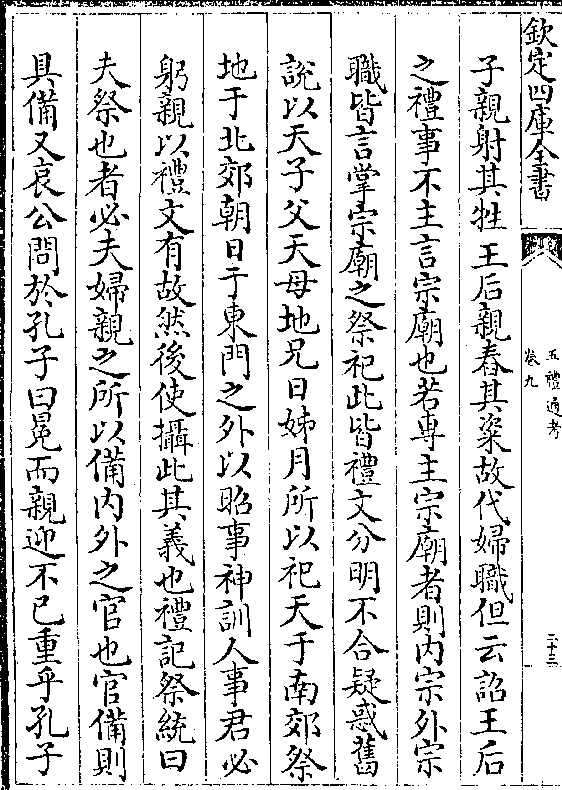 欽定四庫全書
五禮通考
卷九
二十三
子親射其牲王后親舂其粢故代婦職但云詔王后
之禮事不主言宗廟也若專主宗廟者則内宗外宗
職皆言掌宗廟之祭祀此皆禮文分明不合疑惑舊
說以天子父天母地兄日姊月所以祀天于南郊祭
地于北郊朝日于東門之外以昭事神訓人事君必
躬親以禮文有故然後使攝此其義也禮記祭統曰
夫祭也者必夫婦親之所以備内外之官也官備則
具備又哀公問於孔子曰冕而親迎不已重乎孔子